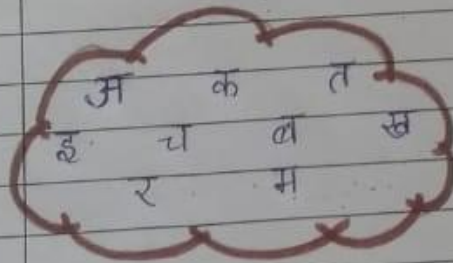 अ क त
इ च ब ख
र म